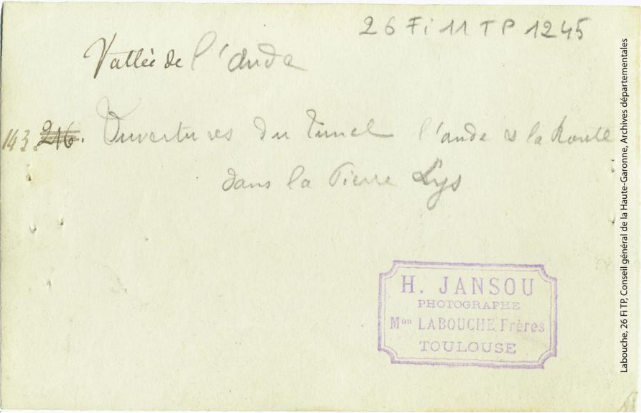 26 Fi 11 TP 1245
Vallée de l'Aude
143 216. Ouvertures du tunel l'aude & la Route
dans la Pierre Lys
H. JANSOU
PHOTOGRAPHE
Mon LABOUCHE Frères
TOULOUSE
Labouche, 26 Fi TP, Conseil général de la Haute-Garonne, Archives départementales